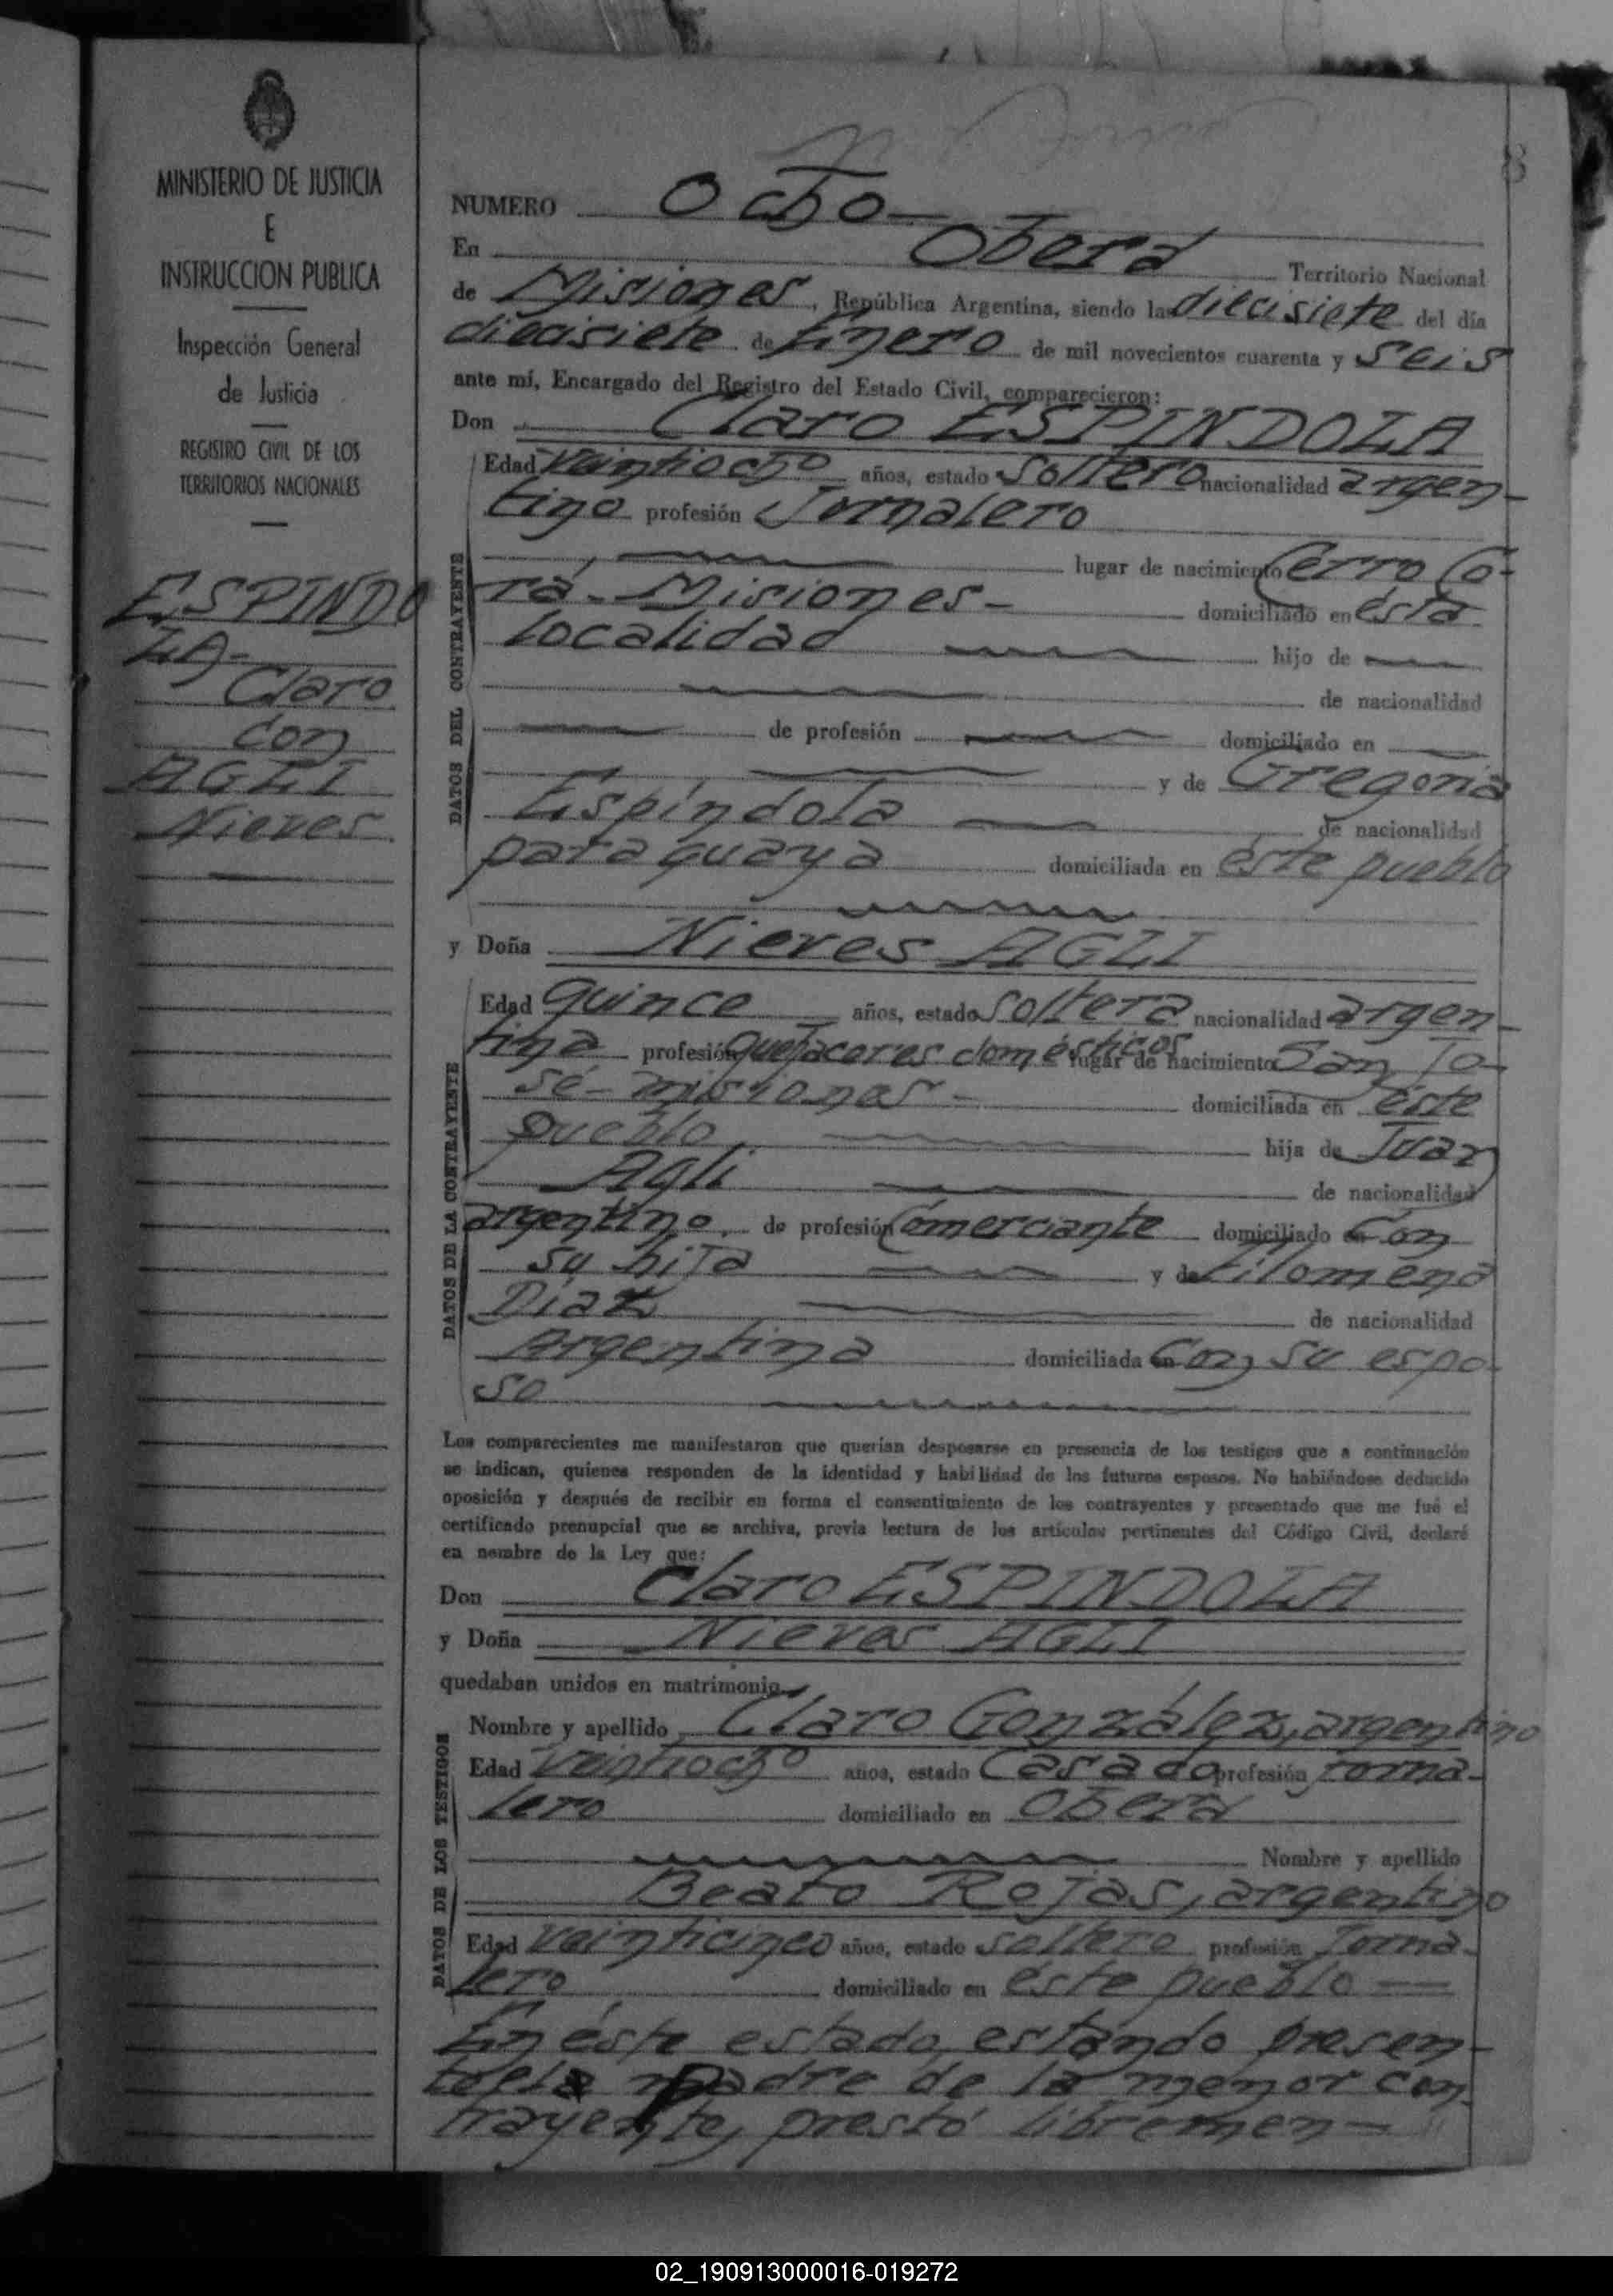 MINISTERIO DE JUSTICIA
E
INSTRUCCION PUBLICA
Inspección General
de Justicia
REGISTRO CIVIL DE LOS
TERRITORIOS NACIONALES
ESPINDO
LA-
Claro
con
AGLI
Nieves
8
NUMERO Ocho
En Oberá Territorio Nacional
de Misiones, República Argentina, siendo las diecisiete del día
diecisiete de Enero de mil novecientos cuarenta y seis
ante mí, Encargado del Registro del Estado Civil, comparecieron:
Don Claro ESPINDOLA
DATOS DEL CONTRAYENTE
Edad veintiocho años, estado soltero nacionalidad argen-
tino profesión Jornalero
lugar de nacimiento Cerro Co-
rá - Misiones - domiciliado en ésta
localidad hijo de
de nacionalidad
de profesión domiciliado en
y de Gregoria
Espíndola de nacionalidad
paraguaya domiciliada en éste pueblo
y Doña Nieves AGLI
DATOS DE LA CONTRAYENTE
Edad quince años, estado soltera nacionalidad argen-
tina profesión quehaceres domésticos lugar de nacimiento San Jo-
sé - misiones - domiciliada en éste
pueblo hija de Juan
Agli de nacionalidad
argentino de profesión Comerciante domiciliado en con
su hija y de Filomena
Díaz de nacionalidad
Argentina domiciliada en con su espo-
so
Los comparecientes me manifestaron que querían desposarse en presencia de los testigos que a continuación
se indican, quienes responden de la identidad y habilidad de los futuros esposos. No habiéndose deducido
oposición y después de recibir en forma el consentimiento de los contrayentes y presentado que me fué el
certificado prenupcial que se archiva, previa lectura de los artículos pertinentes del Código Civil, declaré
en nombre de la Ley que:
Don Claro ESPINDOLA
y Doña Nieves AGLI
quedaban unidos en matrimonio
DATOS DE LOS TESTIGOS
Nombre y apellido Claro González, argentino
Edad veintiocho años, estado Casado profesión Jorna-
lero domiciliado en Oberá
Nombre y apellido
Beato Rojas, argentino
Edad veinticinco años, estado soltero profesión Jorna-
lero domiciliado en éste pueblo
En éste estado, estando presen-
te la madre de la menor con-
trayente, prestó libremen-
02_190913000016-019272